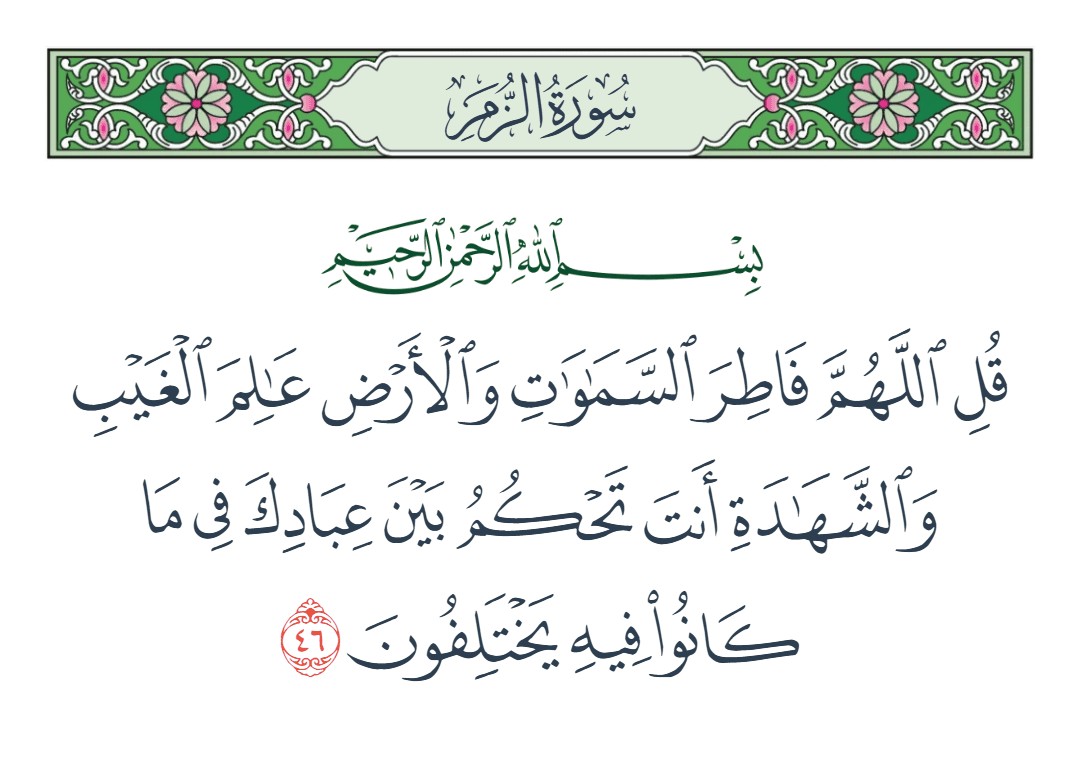 سُورَةُ الزُّمَرِ
بِسْمِ ٱللَّهِ ٱلرَّحْمَٰنِ ٱلرَّحِيمِ
قُلِ ٱللَّهُمَّ فَاطِرَ ٱلسَّمَٰوَٰتِ وَٱلْأَرْضِ عَٰلِمَ ٱلْغَيْبِ
وَٱلشَّهَٰدَةِ أَنتَ تَحْكُمُ بَيْنَ عِبَادِكَ فِى مَا
كَانُوا۟ فِيهِ يَخْتَلِفُونَ ٤٦